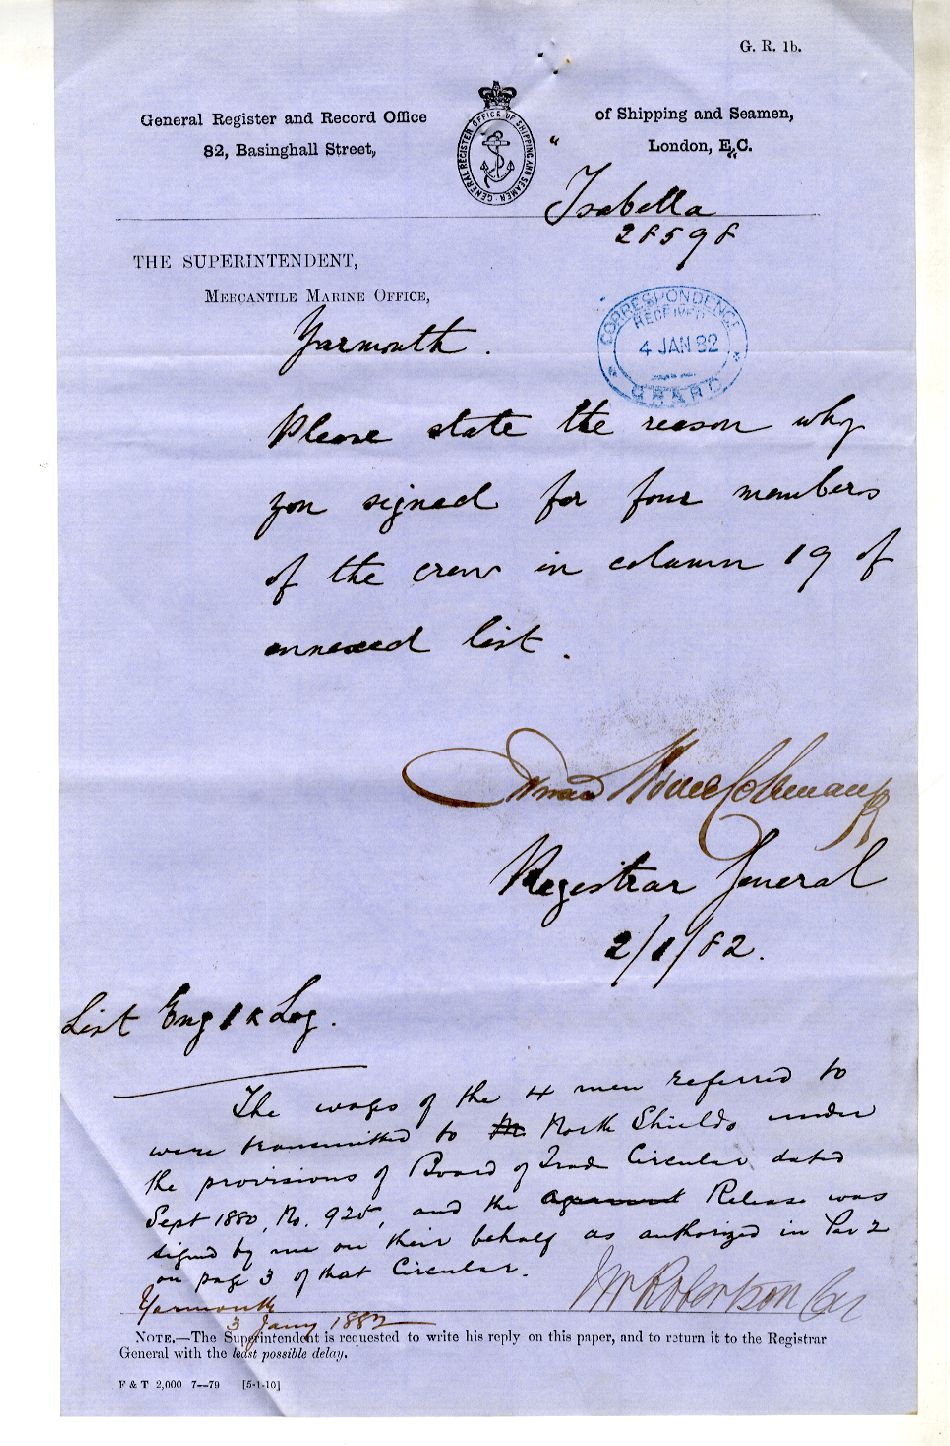 G. R. 1b.
General Register and Record Office
of Shipping and Seamen,
82, Basinghall Street,
London, E.C.
GENERAL REGISTER OFFICE OF SHIPPING AND SEAMEN
Isabella
28598
THE SUPERINTENDENT,
MERCANTILE MARINE OFFICE,
Yarmouth.
CORRESPONDENCE
RECEIVED
4 JAN 82
Please state the reason why
you signed for four members
of the crew in column 19 of
annexed list.
Registrar General
2/1/82.
List Eng 1 & Log.
The wages of the 4 men referred to
were transmitted to North Shields under
the provisions of Board of Trade Circular dated
Sept 1880, No. 925, and the agreement Release was
signed by me on their behalf as authorized in Par 2
on page 3 of that Circular.
Yarmouth
3 Jany 1882
Robertson
NOTE.—The Superintendent is requested to write his reply on this paper, and to return it to the Registrar
General with the least possible delay.
F & T 2,000 7—79 [5-1-10]